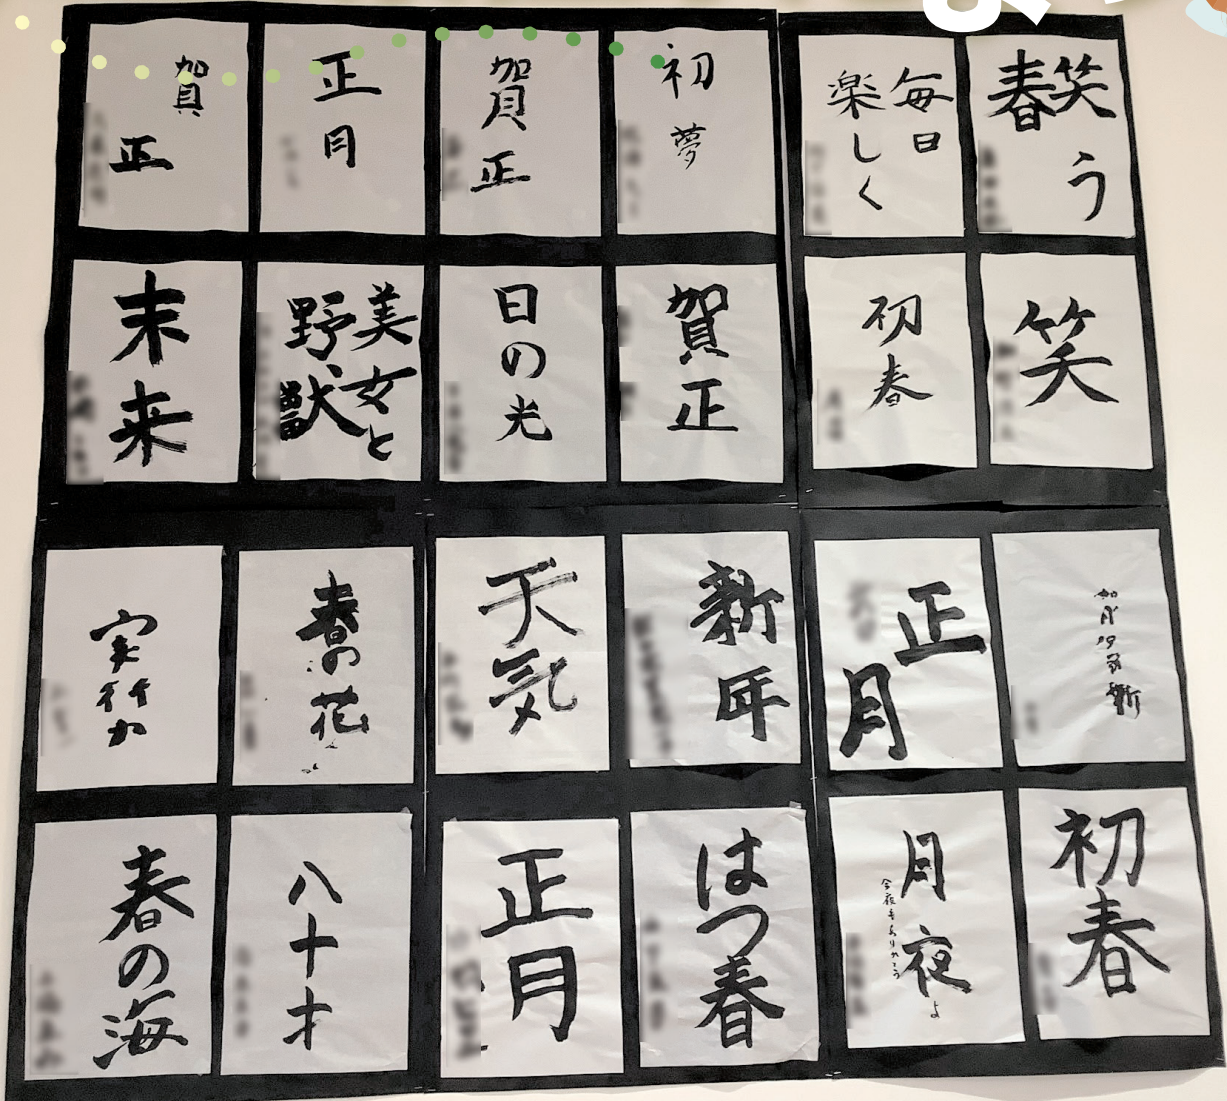 賀正
正月
賀正
初夢
毎日
楽しく
笑う
春
末来
美女と
野獣
日の光
賀正
初春
笑
実行力
春の花
天気
新年
正月
春の海
八十才
正月
はつ春
月夜
今夜もありがとう
初春